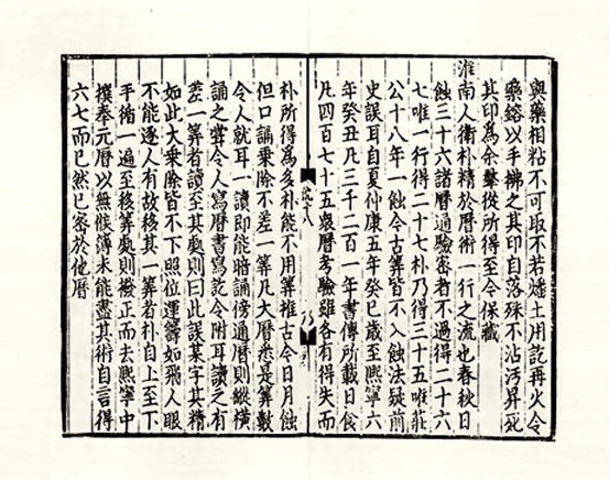 與藥相粘不可取不若燔土用訖再火令
藥鎔以手拂之其印自落殊不沾汚昇死
其印為余羣從所得至今保藏
淮南人衛朴精於曆術一行之流也春秋日
蝕三十六諸曆通驗密者不過得二十六
七唯一行得二十七朴乃得三十五唯莊
公十八年一蝕今古筭皆不入蝕法疑前
史誤耳自夏仲康五年癸巳歲至熙寧六
年癸丑凡三千二百一年書傳所載日食
凡四百七十五衆曆考驗雖各有得失而
朴所得為多朴能不用筭推古今日月蝕
但口誦乘除不差一筭凡大曆悉是筭數
令人就耳一讀即能暗誦傍通曆則縱橫
誦之嘗令人寫曆書寫訖令附耳讀之有
差一筭者讀至其處則曰此誤某字其精
如此大乘除皆不下照位運籌如飛人眼
不能逐人有故移其一筭者朴自上至下
手循一遍至移筭處則撥正而去熙寧中
撰奉元曆以無候簿未能盡其術自言得
六七而已然已密於他曆